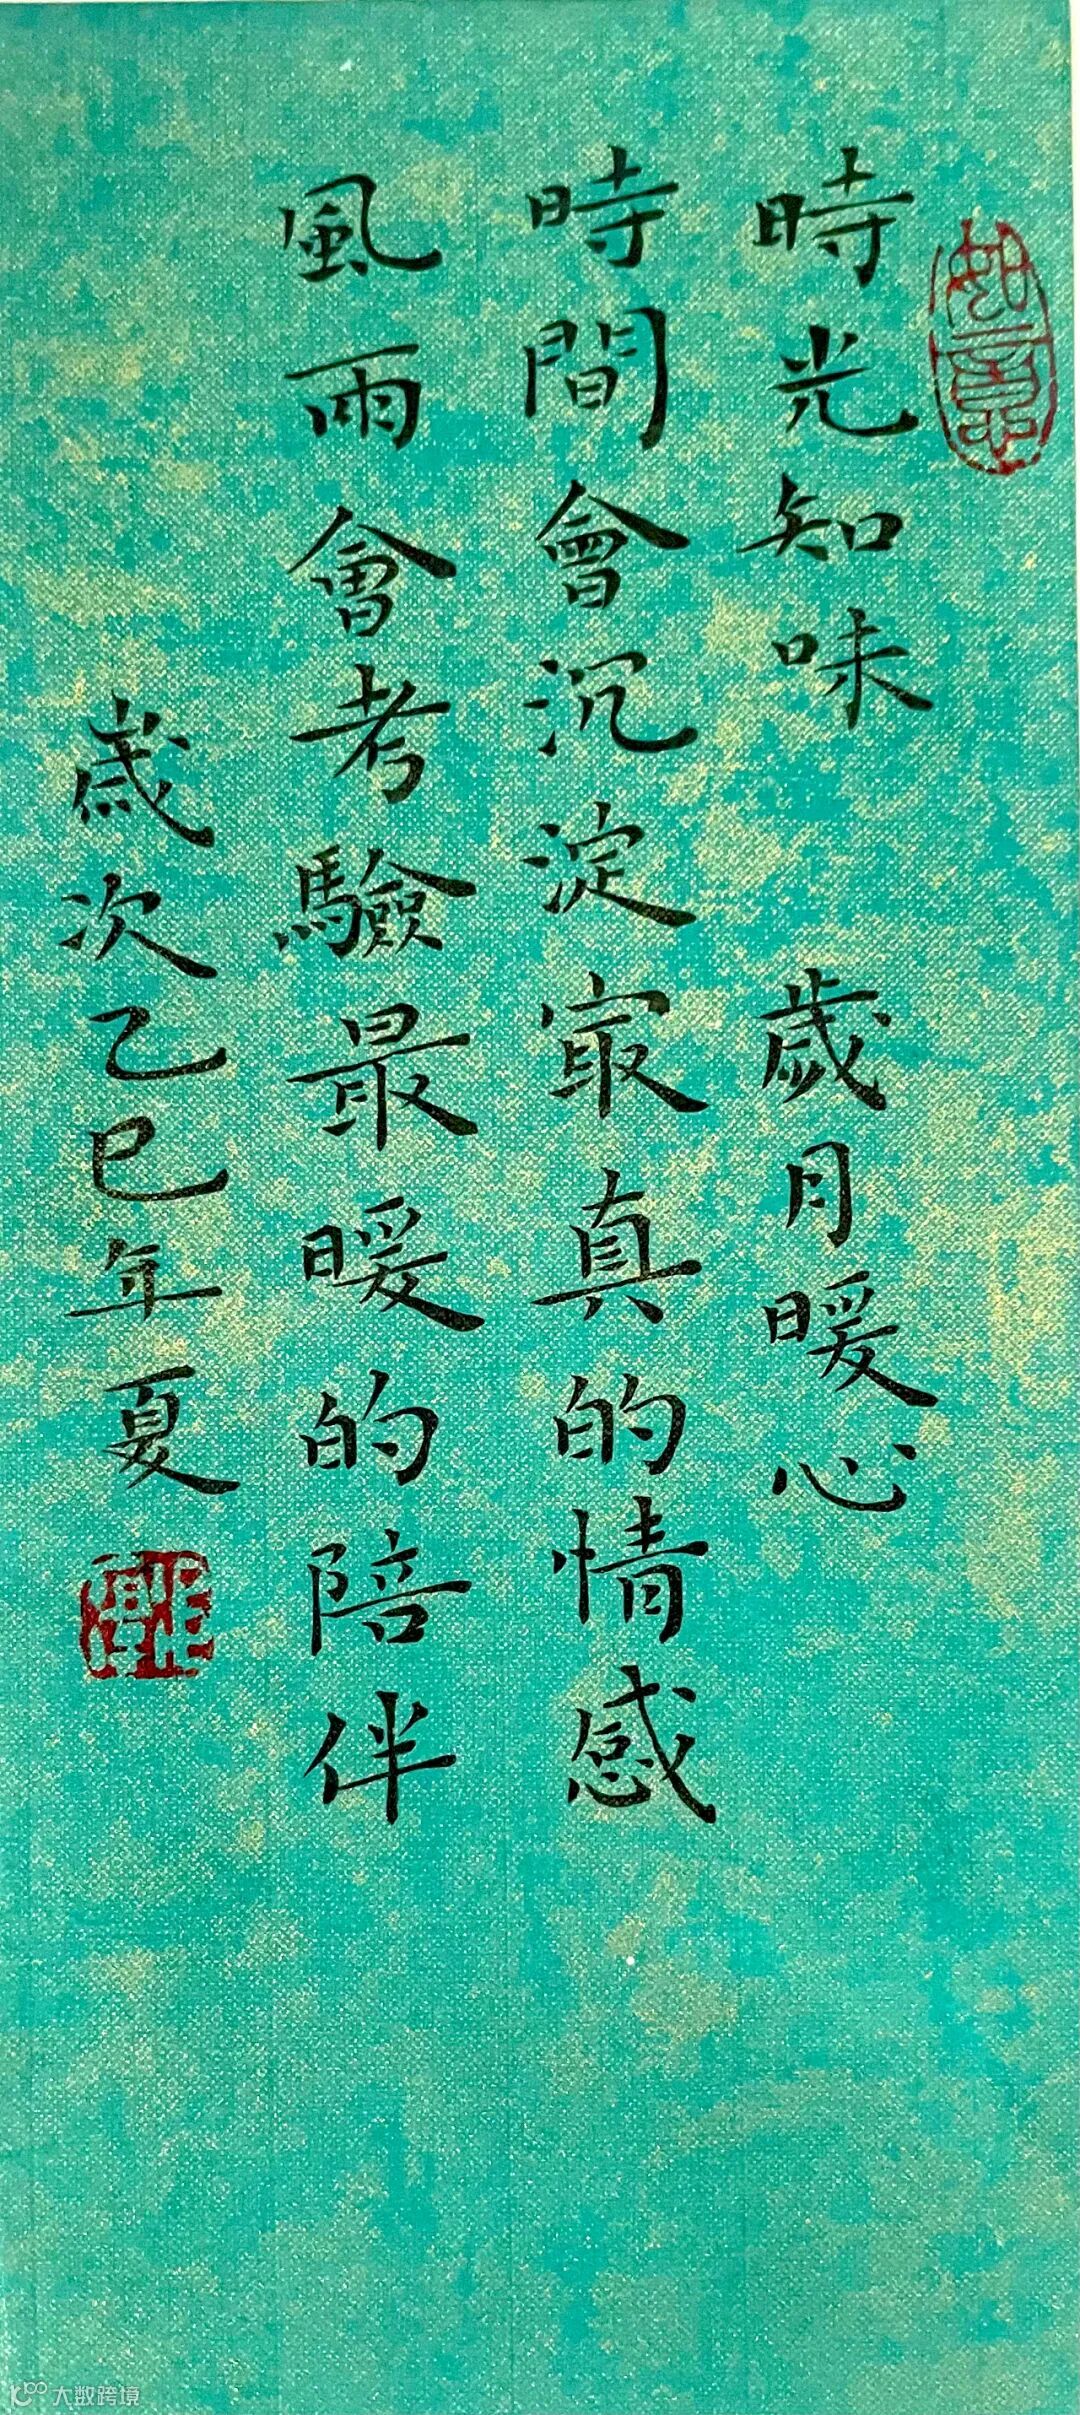 時光知味　歲月暖心
時間會沉淀冣真的情感
風雨會考驗最暖的陪伴
歲次乙巳年夏
如意
大数跨境